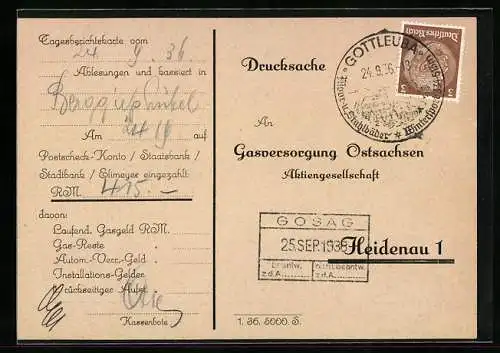 Tagesberichtskarte vom
24. 9. 36.
Ablesungen und kassiert in
Berggießhübel
Am 24/9 auf
Postscheck-Konto / Staatsbank /
Stadtbank / Elimeyer eingezahlt
RM. 415.-
davon:
Laufend. Gasgeld RM.
Gas-Reste
Autom.-Verr.-Geld
Installations-Gelder
Rückseitiger Aufst.
Kassenbote:
Drucksache
An
Gasversorgung Ostsachsen
Aktiengesellschaft
Heidenau 1
GOSAG
25.SEP.1936
z.d.A.
z.d.A.
1. 36. 5000. S.
GOTTLEUBA
24.9.36
Moor- u. Stahlbäder * Wintersport
Deutsches Reich
3 3